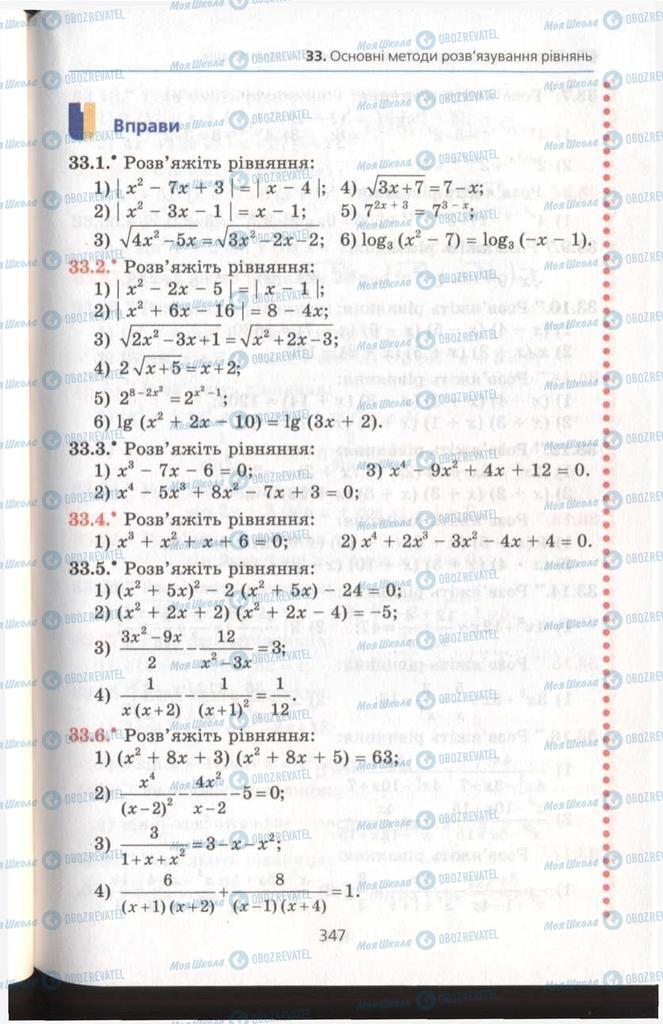 33. Основні методи розв'язування рівнянь
Вправи
33.1.• Розв'яжіть рівняння:
1) | x² − 7x + 3 | = | x − 4 |; 4) √(3x+7) = 7−x;
2) | x² − 3x − 1 | = x − 1; 5) 7^(2x + 3) = 7^(3 − x);
3) √(4x² −5x) = √(3x² −2x−2); 6) log₃ (x² − 7) = log₃ (−x − 1).
33.2.• Розв'яжіть рівняння:
1) | x² − 2x − 5 | = | x − 1 |;
2) | x² + 6x − 16 | = 8 − 4x;
3) √(2x² −3x+1) = √(x² +2x−3);
4) 2√(x+5) = x+2;
5) 2^(8−2x³) = 2^(x²−1);
6) lg (x² + 2x − 10) = lg (3x + 2).
33.3.• Розв'яжіть рівняння:
1) x³ − 7x − 6 = 0; 3) x⁴ − 9x² + 4x + 12 = 0.
2) x⁴ − 5x³ + 8x² − 7x + 3 = 0;
33.4.• Розв'яжіть рівняння:
1) x³ + x² + x + 6 = 0; 2) x⁴ + 2x³ − 3x² − 4x + 4 = 0.
33.5.• Розв'яжіть рівняння:
1) (x² + 5x)² − 2 (x² + 5x) − 24 = 0;
2) (x² + 2x + 2) (x² + 2x − 4) = −5;
3) (3x² −9x)/2 − 12/(x² −3x) = 3;
4) 1/(x(x+2)) − 1/(x+1)² = 1/12.
33.6.• Розв'яжіть рівняння:
1) (x² + 8x + 3) (x² + 8x + 5) = 63;
2) x⁴/(x−2)² − 4x²/(x−2) − 5 = 0;
3) 3/(1+x+x²) = 3−x−x²;
4) 6/((x+1)(x+2)) + 8/((x−1)(x+4)) = 1.
347